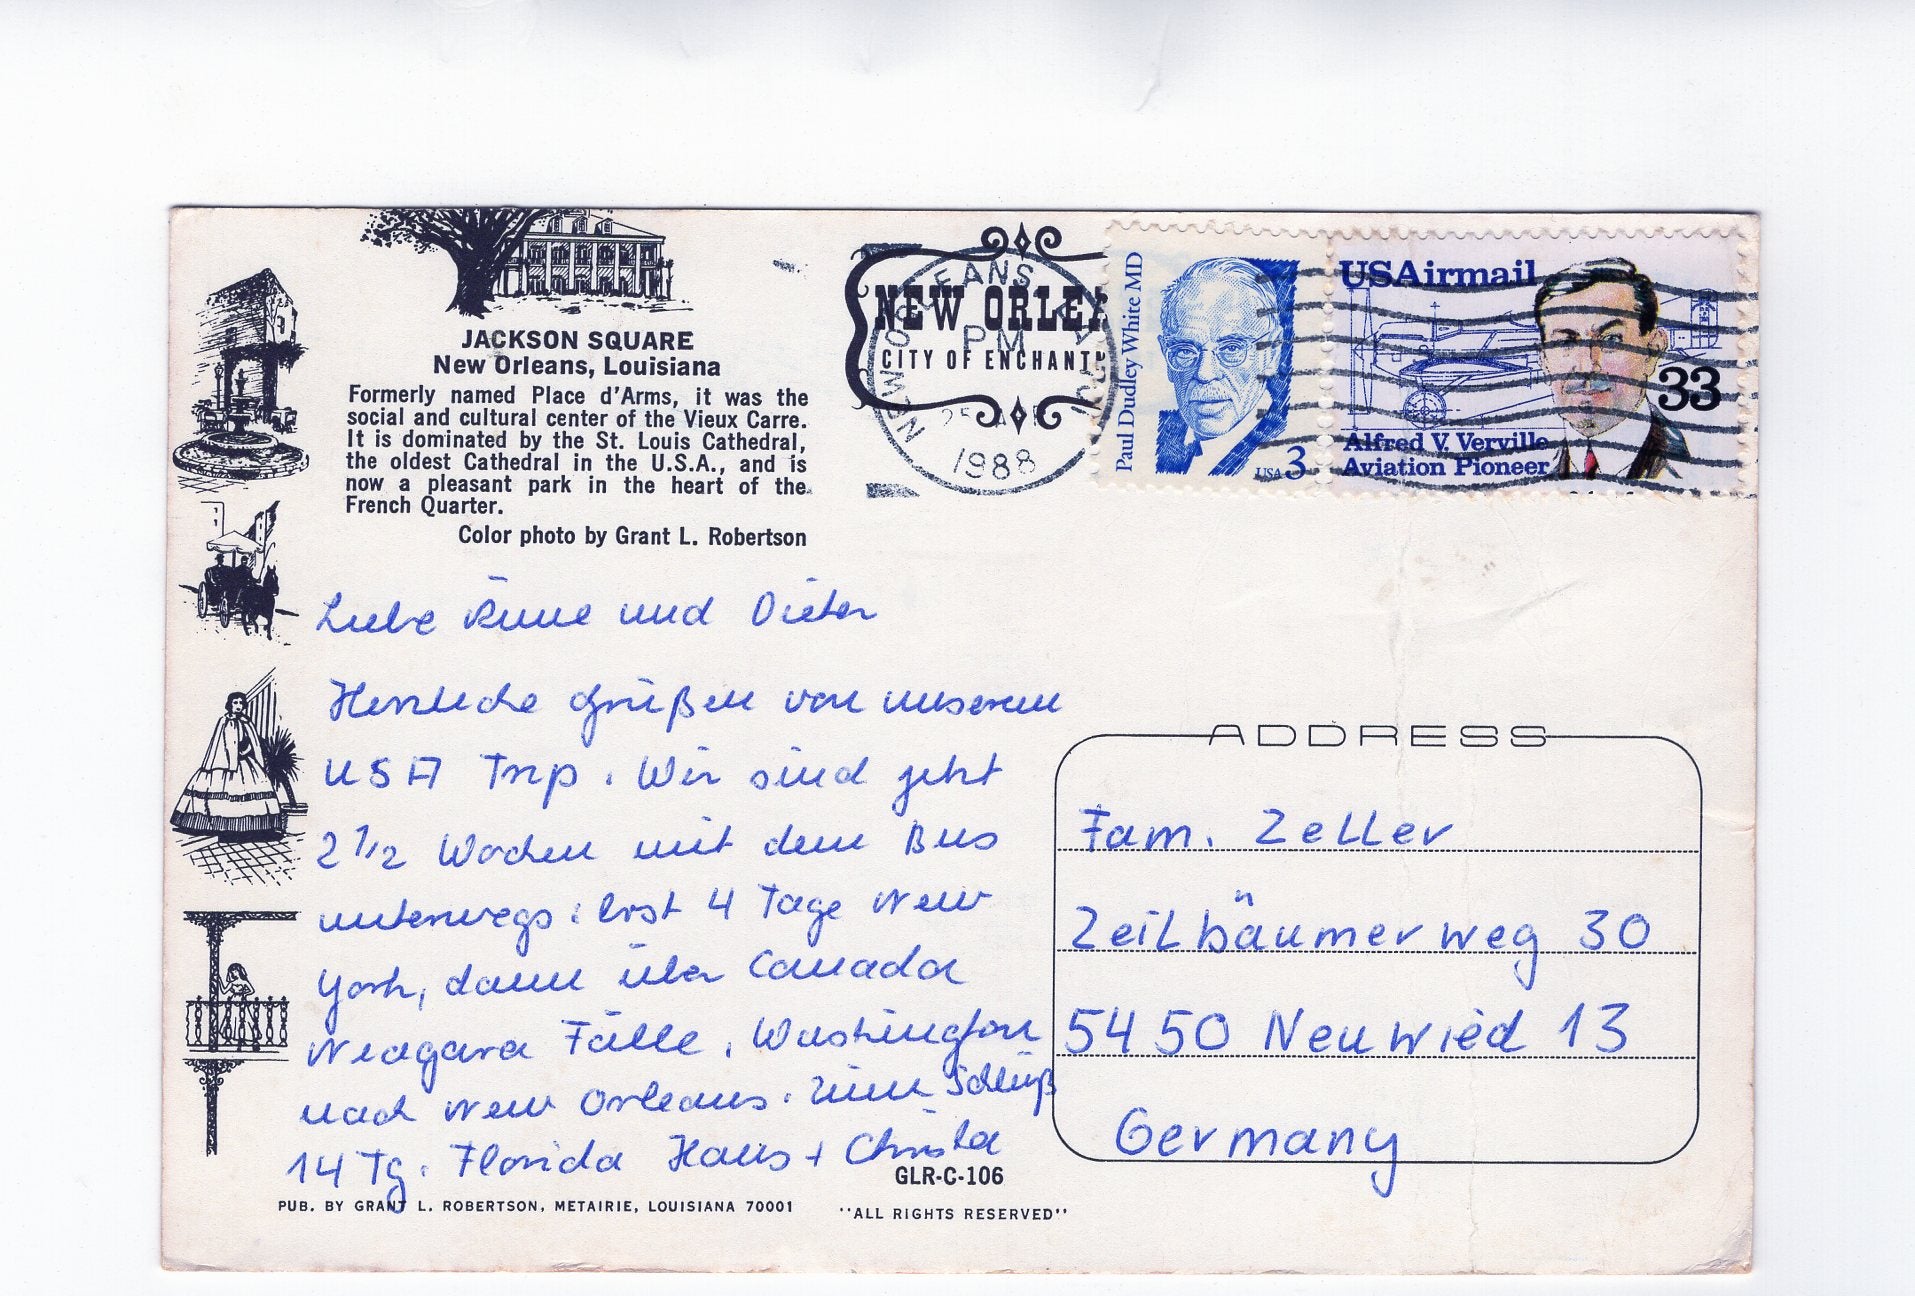 JACKSON SQUARE
New Orleans, Louisiana
Formerly named Place d'Arms, it was the
social and cultural center of the Vieux Carre.
It is dominated by the St. Louis Cathedral,
the oldest Cathedral in the U.S.A., and is
now a pleasant park in the heart of the
French Quarter.
Color photo by Grant L. Robertson
NEW ORLEANS
PM
1988
NEW ORLEA
CITY OF ENCHANT
Paul Dudley White MD
USA 3
USAirmail
33
Alfred V. Verville
Aviation Pioneer
Liebe und Dieter
Herzliche Grüßen von unserem
USA Trip. Wir sind jetzt
2 1/2 Wochen mit dem Bus
unterwegs. Erst 4 Tage New
York, dann über Canada
Niagara Fälle, Washington
nach New Orleans. Zum Schluß
14 Tg. Florida Haus + Christa
ADDRESS
Fam. Zeller
Zeilbäumerweg 30
5450 Neuwied 13
Germany
GLR-C-106
PUB. BY GRANT L. ROBERTSON, METAIRIE, LOUISIANA 70001
"ALL RIGHTS RESERVED"